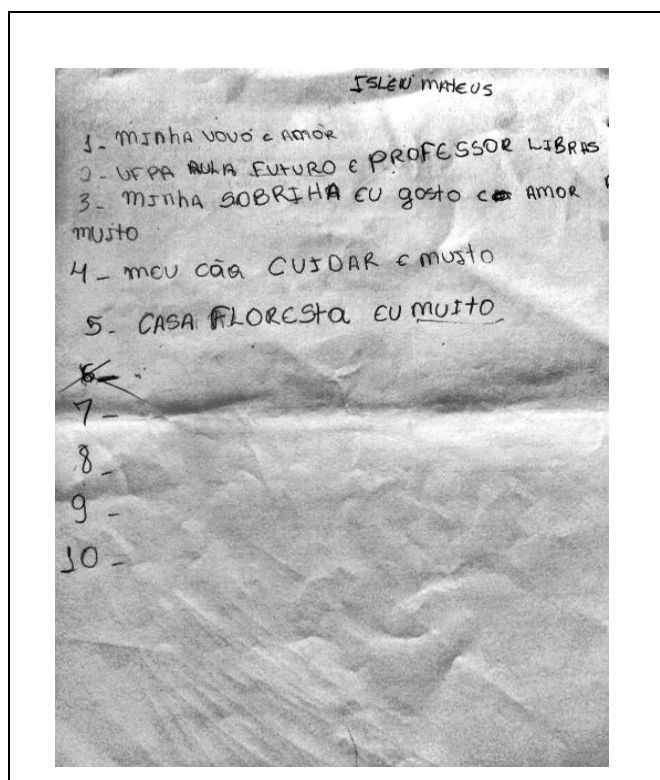 ISLEN MATEUS
1- MINhA VOVÓ e AMOR
2- UFPA AULA FUTURO E PROFESSOR LIBRAS
3- MINhA SOBRIHA EU gosto e AMOR
MUITO
4- MEU cão CUIDAR e MUITO
5- CASA FLORESta EU MUITO
6-
7-
8-
9-
10-